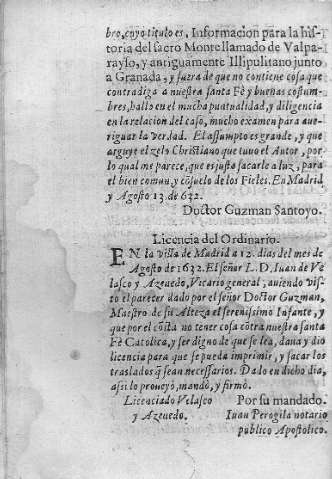 bro, cuyo titulo es, Informacion para la his-
toria del sacro Monte llamado de Valpa-
rayso, y antiguamente Illipulitano junto
a Granada, y fuera de que no contiene cosa que
contradiga a nuestra santa Fè y buenas costum-
bres, hallo en el mucha puntualidad, y diligencia
en la relacion del caso, mucho examen para aue-
riguar la verdad. El assumpto es grande, y que
arguye el zelo Christiano que tuuo el Autor, por
lo qual me parece, que es justo sacarle a luz, para
el bien comun, y cõsuelo de los Fieles. En Madrid
y Agosto 13. de 632.
Doctor Guzman Santoyo.
Licencia del Ordinario.
EN la villa de Madrid a 12. dias del mes de
Agosto de 1632. El señor L. D. Iuan de Ve
lasco y Azeuedo, Vicario general, auiendo vis-
to el parecer dado por el señor Doctor Guzman,
Maestro de su Alteza el serenissimo Infante, y
que por el cõsta no tener cosa cõtra nuestra santa
Fè Catolica, y ser digno de que se lea, daua y dio
licencia para que se pueda imprimir, y sacar los
traslados q̃ sean necessarios. Dado en dicho dia,
assi lo proueyò, mandò, y firmò.
Licenciado Velasco
y Azeuedo.
Por su mandado.
Iuan Perogila notario
publico Apostolico.